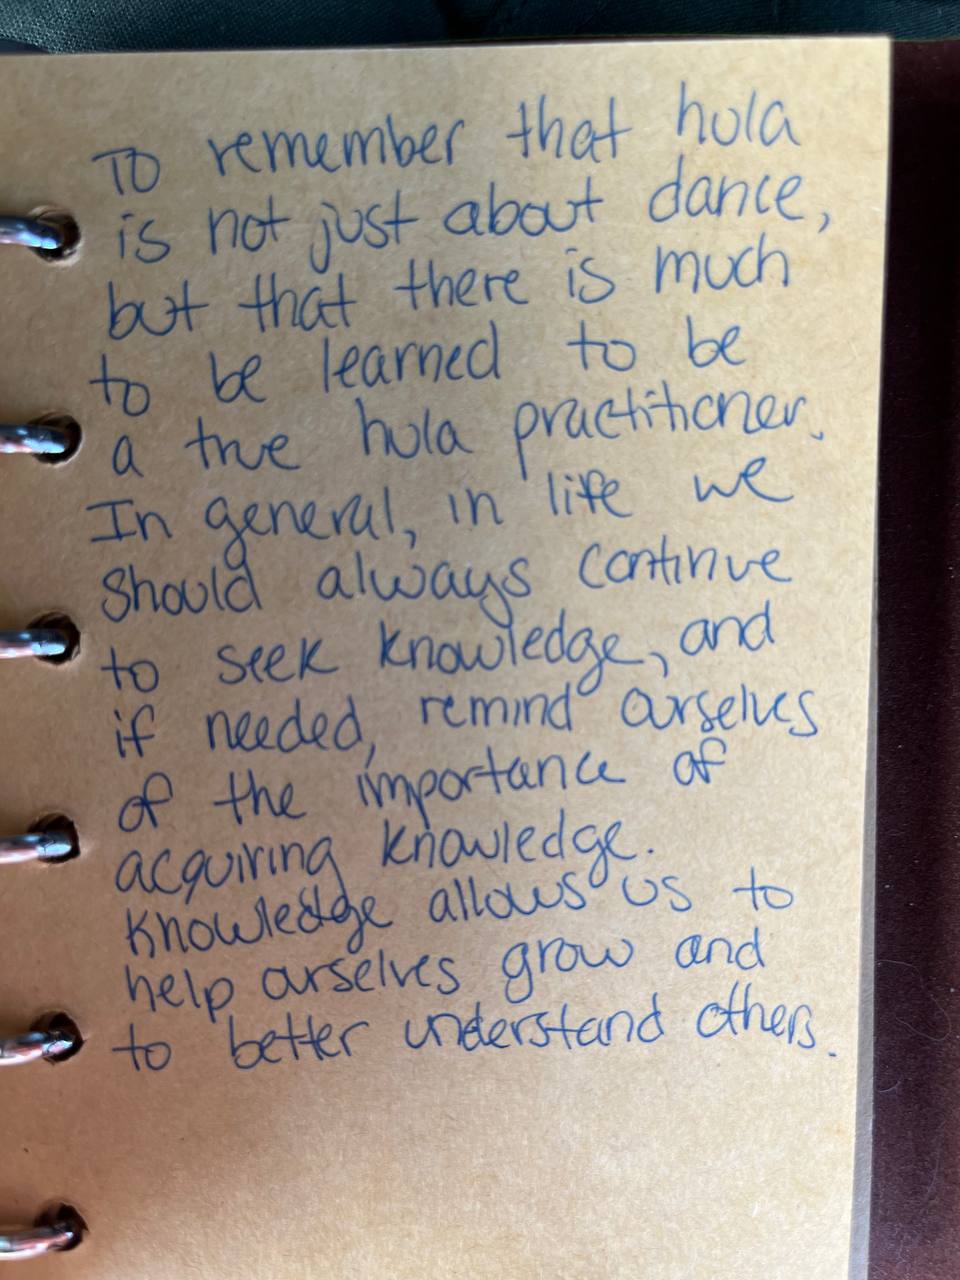 To remember that hula
is not just about dance,
but that there is much
to be learned to be
a true hula practitioner.
In general, in life we
should always continue
to seek knowledge, and
if needed, remind ourselves
of the importance of
acquiring knowledge.
Knowledge allows us to
help ourselves grow and
to better understand others.